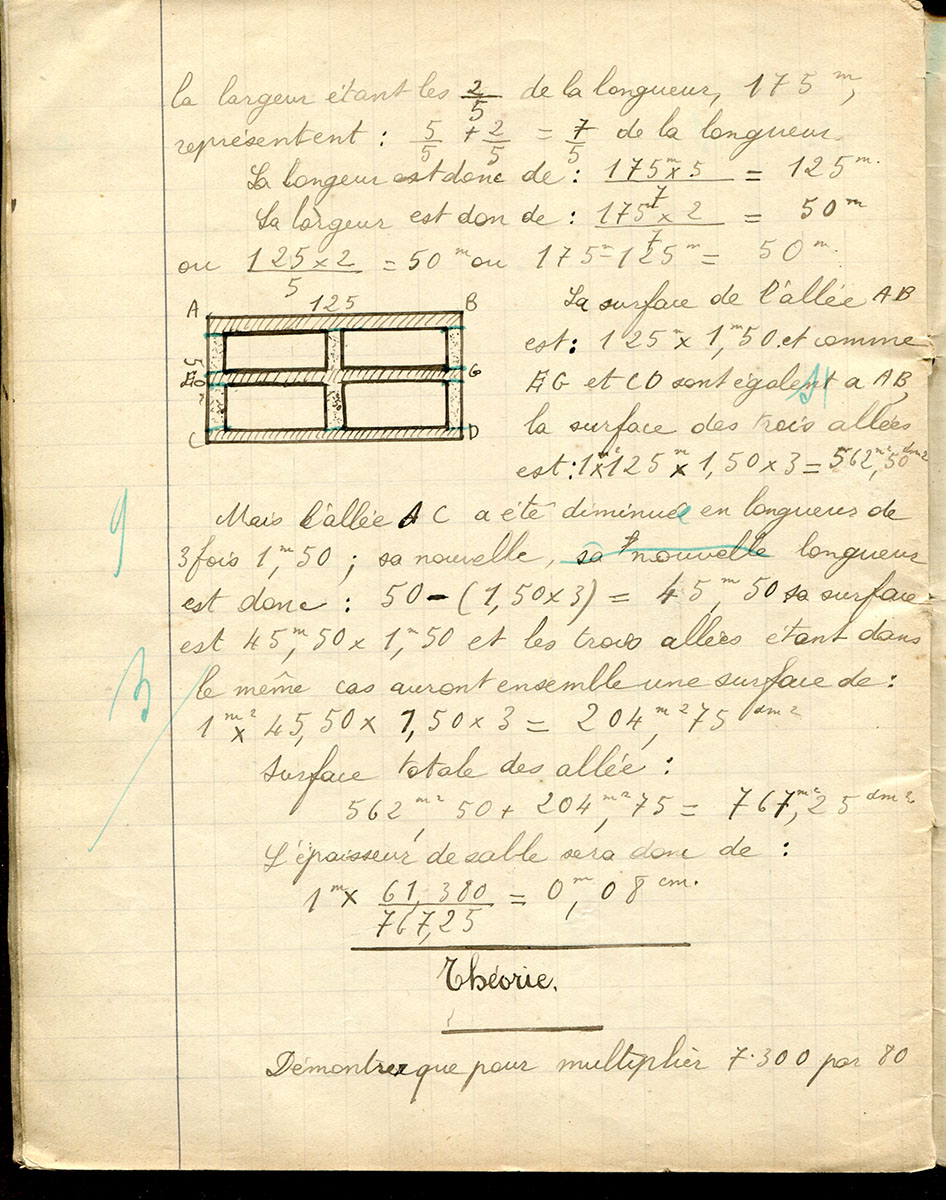 la largeur étant les 2/5 de la longueur, 175 m,
représentent : 5/5 + 2/5 = 7/5 de la longueur.
La longeur est donc de : 175m × 5 / 7 = 125 m.
La largeur est don de : 175m × 2 / 7 = 50 m
ou 125 × 2 / 5 = 50 m ou 175 m - 125 m = 50 m.
A 125 B
E G
C D
La surface de l'allée AB
est : 125 m × 1,m50 et comme
EG et CD sont égalent a AB
la surface des trois allées
est : 1 m² × 125 × 1,50 × 3 = 562,m² 50 dm2
9
Mais l'allée AC a été diminuée en longueur de
3 fois 1,m50 ; sa nouvelle, sa nouvelle longueur
est donc : 50 - (1,50 × 3) = 45,m 50 sa surface
est 45,m50 × 1,m50 et les trois allées étant dans
le même cas auront ensemble une surface de :
1 m² × 45,50 × 1,50 × 3 = 204,m² 75 dm2
Surface totale des allée :
562,m² 50 + 204,m² 75 = 767,m² 25 dm2
L'épaisseur de sable sera donc de :
1 m × 61,380 / 767,25 = 0,m 08 cm.
Théorie.
Démontrer que pour multiplier 7.300 par 80